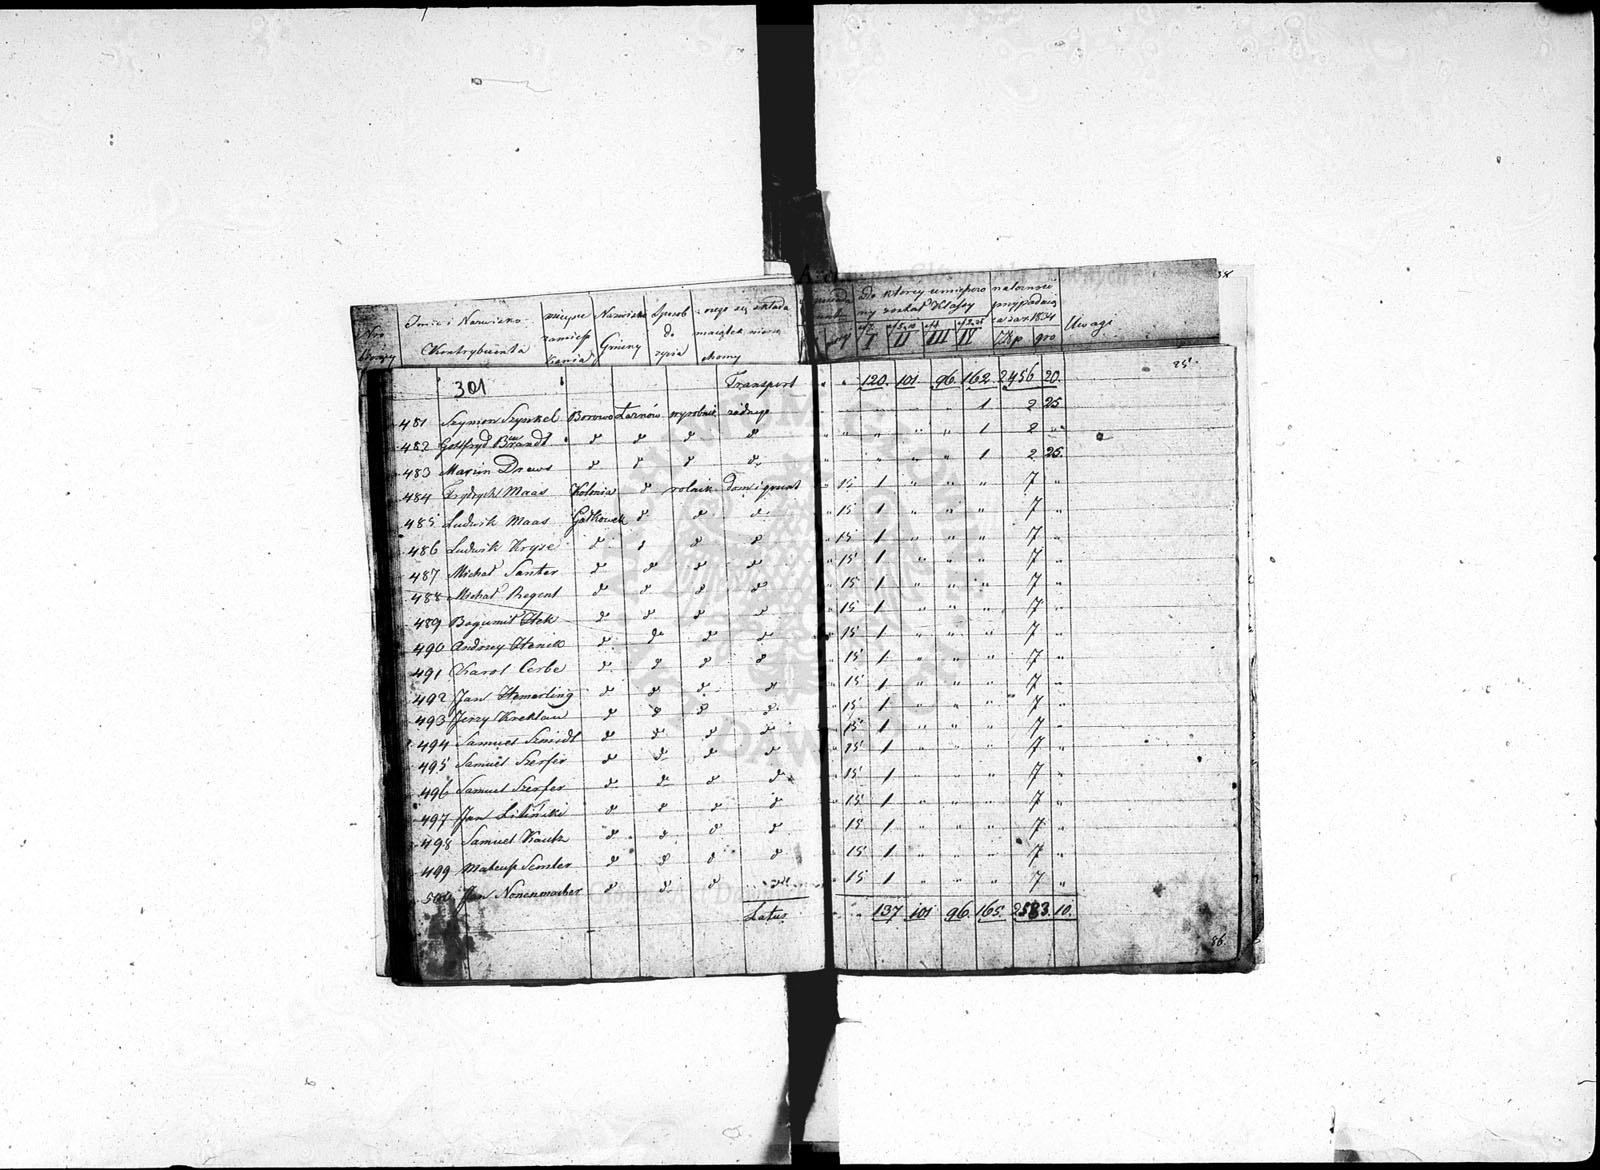 38
Imie i Nazwisko Kontrybuenta
Nazwisko Gminy
Sposob do życia
I II III IV Złp gro
Uwagi
25
301 Transport 120. 101 96. 162. 2456 20.
481 Szymon Szynkel Borowo Łaznów wyrobnik żadnego 1 2 25
482 Gottfryd Brandt d d d d 1 2 "
483 Marcin Drews d d d d 1 2 25.
484 Frydrych Maas Kolonia d rolnik Dom i grunt " 15 1 " " " 7 "
485 Ludwik Maas Gałkowek d d d " 15 1 " " " 7 "
486 Ludwik Kryse d d d d " 15 1 " " " 7 "
487 Michał Santer d d d d " 15 1 " " " 7 "
488 Michał Regent d d d d " 15 1 " " " 7 "
489 Bogumił d d d d " 15 1 " " " 7 "
490 Andrzey d d d d " 15 1 " " " 7 "
491 Karol Cerbe d d d d " 15 1 " " " 7 "
492 Jan Hemerling d d d d " 15 1 " " " 7 "
493 Jerzy Kreklau d d d d " 15 1 " " " 7 "
494 Samuel Szmidt d d d d " 15 1 " " " 7 "
495 Samuel Szerfer d d d d " 15 1 " " " 7 "
496 Samuel Szerfer d d d d " 15 1 " " " 7 "
497 Jan d d d d " 15 1 " " " 7 "
498 Samuel Kautz d d d d " 15 1 " " " 7 "
499 Mateusz Semler d d d d " 15 1 " " " 7 "
500 Jan Nonenmacher d d d d " 15 1 " " " 7 "
Latus " " 137 101 96. 165. 2583. 10.
86.